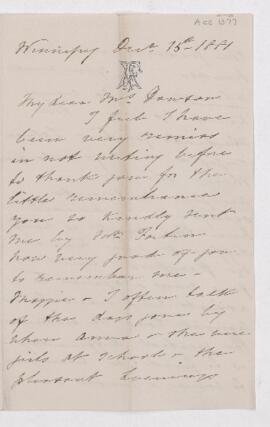 Acc 1077
Winnipeg Decr 15th 1881
My dear Mrs Dawson
I feel I have
been very remiss
in not writing before
to thank you for the
little remembrance
you so kindly sent
me by
how very good of you
to remember me -
Maggie & I often talk
of the days gone by
when Anna & she were
girls at school & the
pleasant evenings